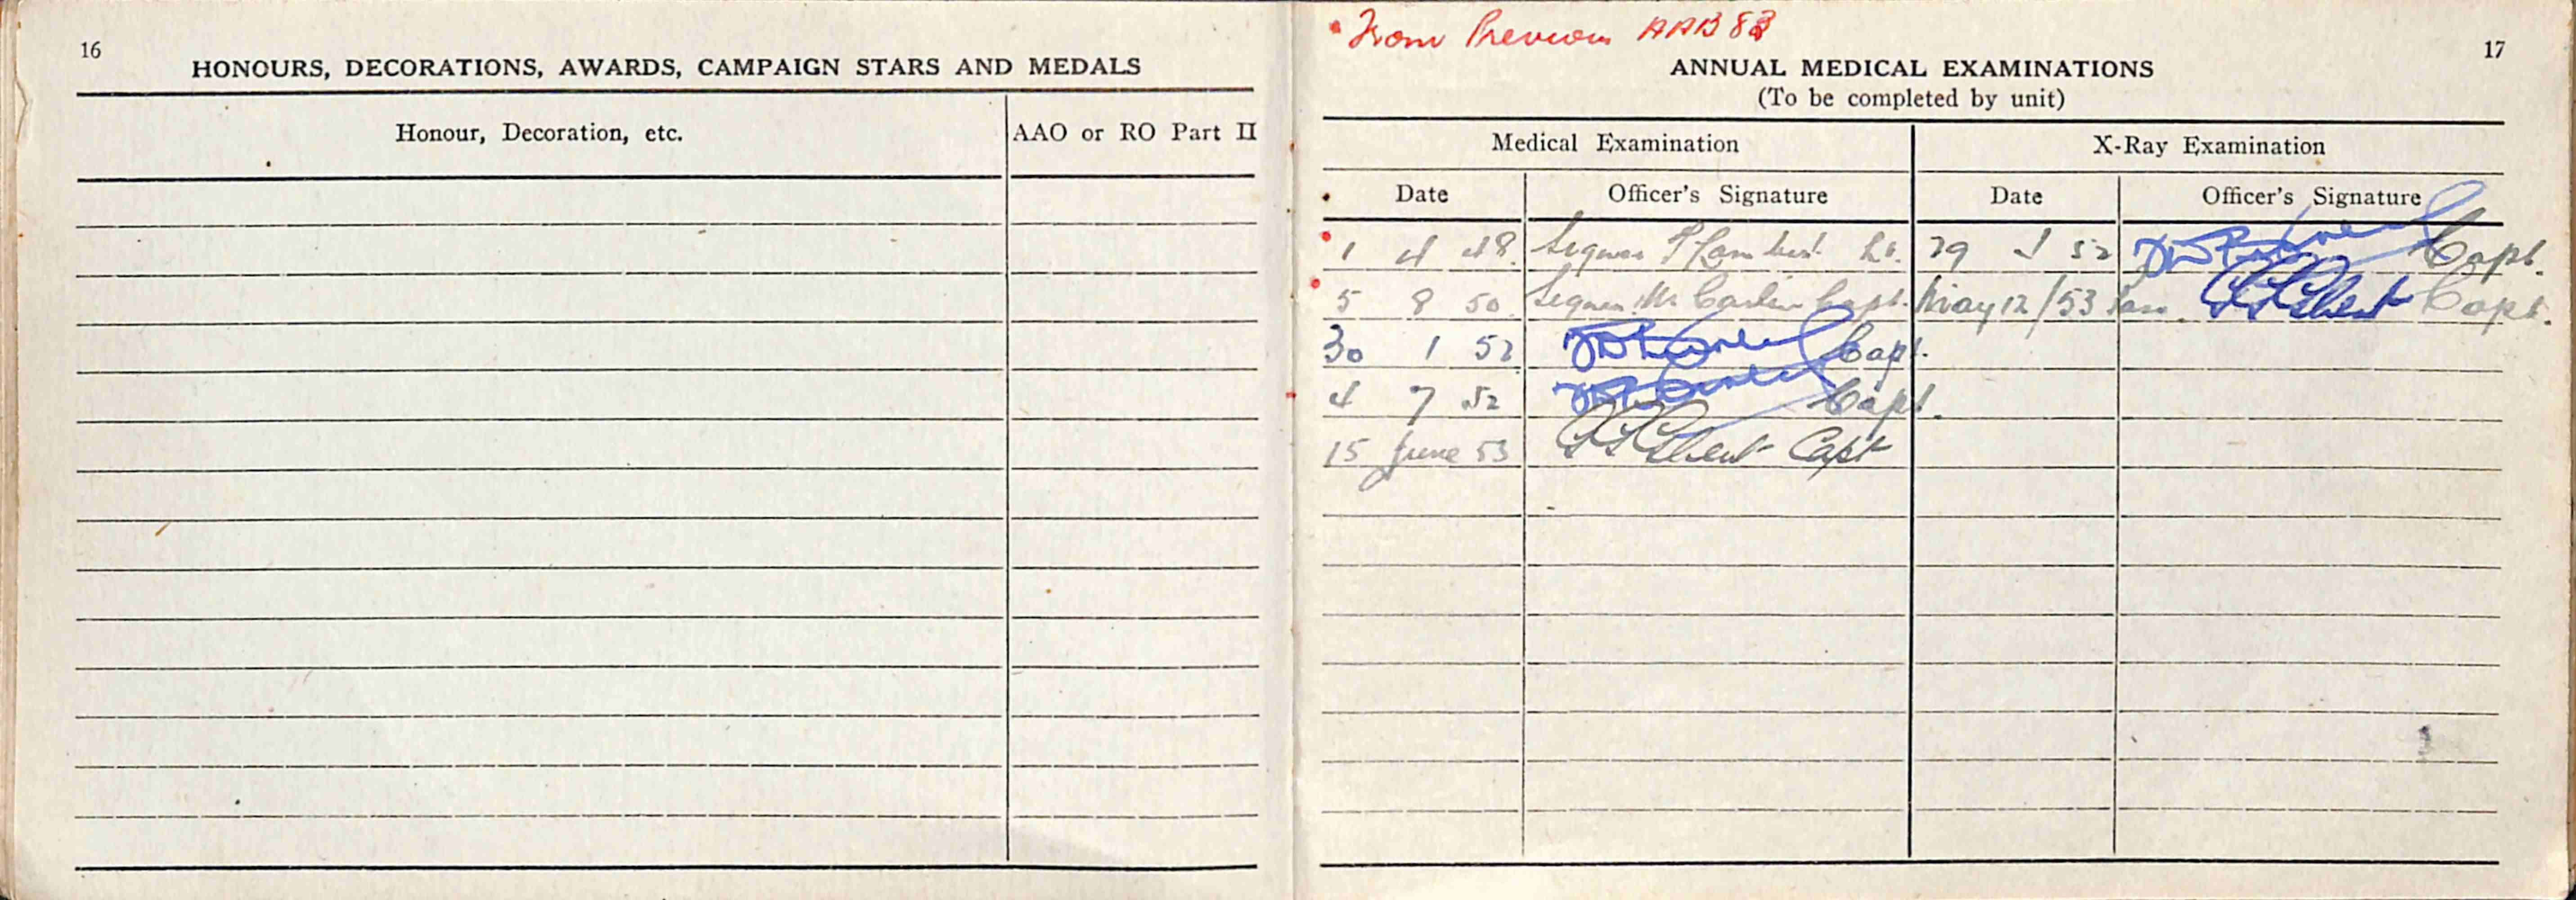 16
HONOURS, DECORATIONS, AWARDS, CAMPAIGN STARS AND MEDALS
Honour, Decoration, etc.
AAO or RO Part II
• From Previous AAB 83
17
ANNUAL MEDICAL EXAMINATIONS
(To be completed by unit)
Medical Examination
X-Ray Examination
Date Officer's Signature Date Officer's Signature
1 4 48. Lt. 29 1 52 Capt.
5 8 50. Capt. May 12/53 Capt.
30 1 52 Capt.
4 7 52 Capt.
15 June 53 Capt